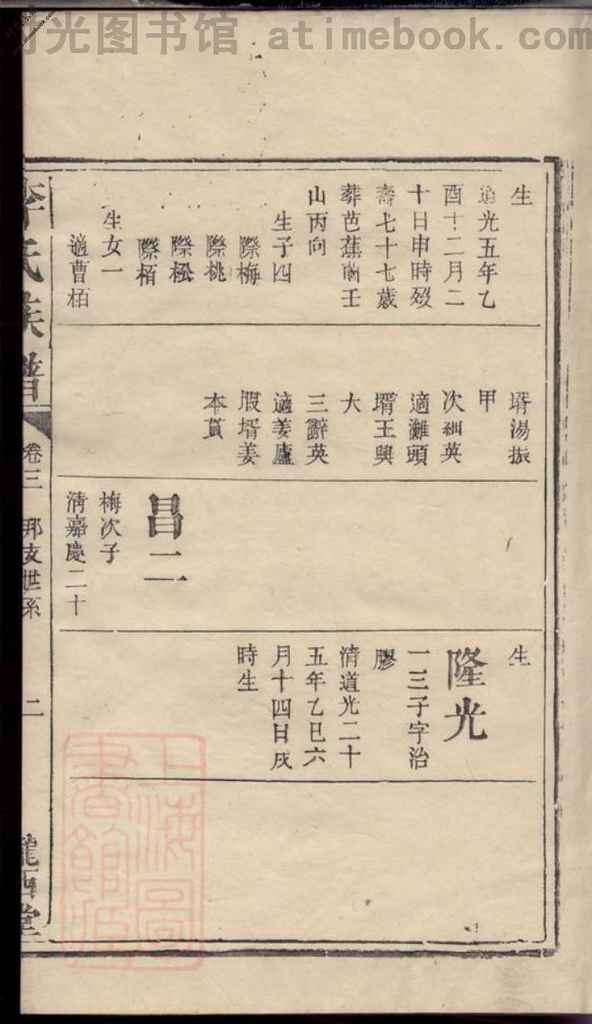 时光图书馆.atimebook.com
生
道光五年乙
酉十二月二
十日申時歿
壽七十七歲
葬芭蕉㘭壬
山丙向
生子四
際梅
際桃
際松
際栢
生女一
適曹栢
壻湯振
甲
次細英
適灘頭
壻王興
大
三辭英
適姜廬
塅壻姜
本貢
昌二
梅次子
清嘉慶二十
生
隆光
一三子字治
膠
清道光二十
五年乙巳六
月十四日戌
時生
李氏族譜
卷三
邦支世系
二
隴西堂
上海圖書館藏